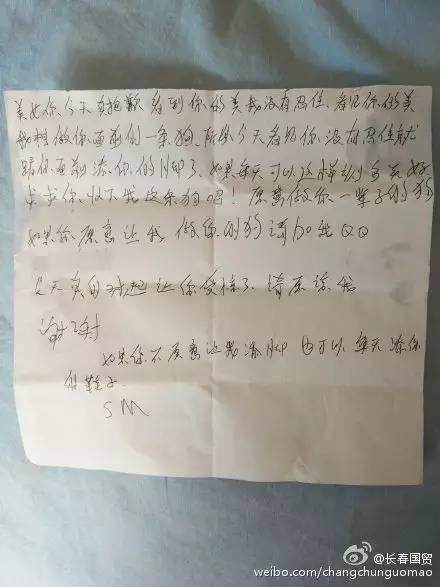 美女你今天真抱歉看到你的美我没有忍住、看见你的美
我想做你面前的一条狗、所以今天看见你没有忍住就
跪你面前添你的脚了、如果每天可以这样该多美好
求求你收下我这条狗吧！愿意做你一辈子的狗
如果你愿意让我做你的狗请加我QQ
今天真的对起让你受惊了、请原谅我
谢谢
如果你不愿意让我添脚也可以每天添你
的鞋子.
SM
@长春国贸
weibo.com/changchunguomao